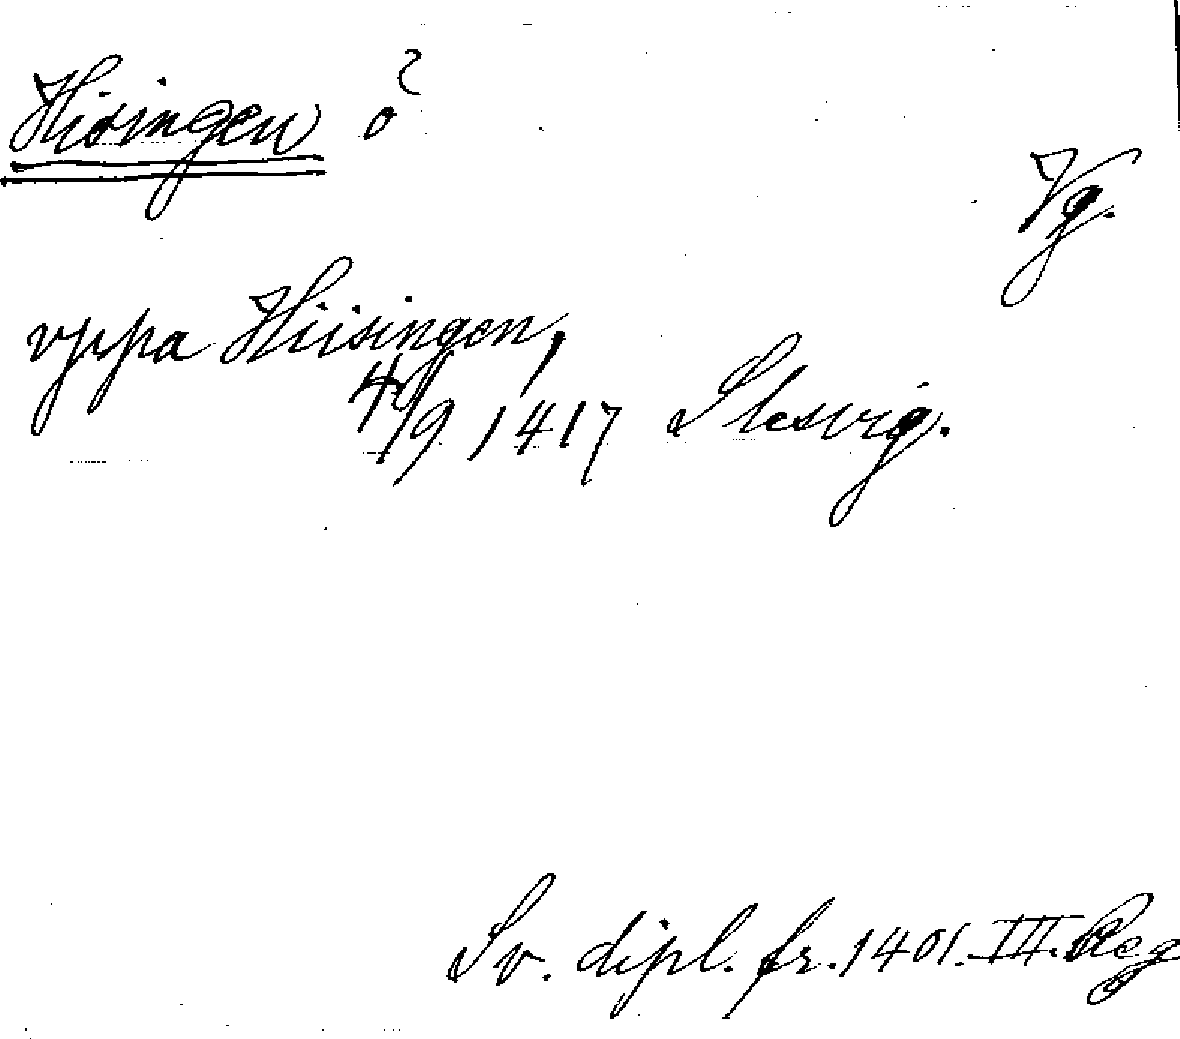 Hisingen ö
Vg.
vppa Hiisingen,
4/9 1417 Slesvig.
Sv. dipl. fr. 1401. III. Reg